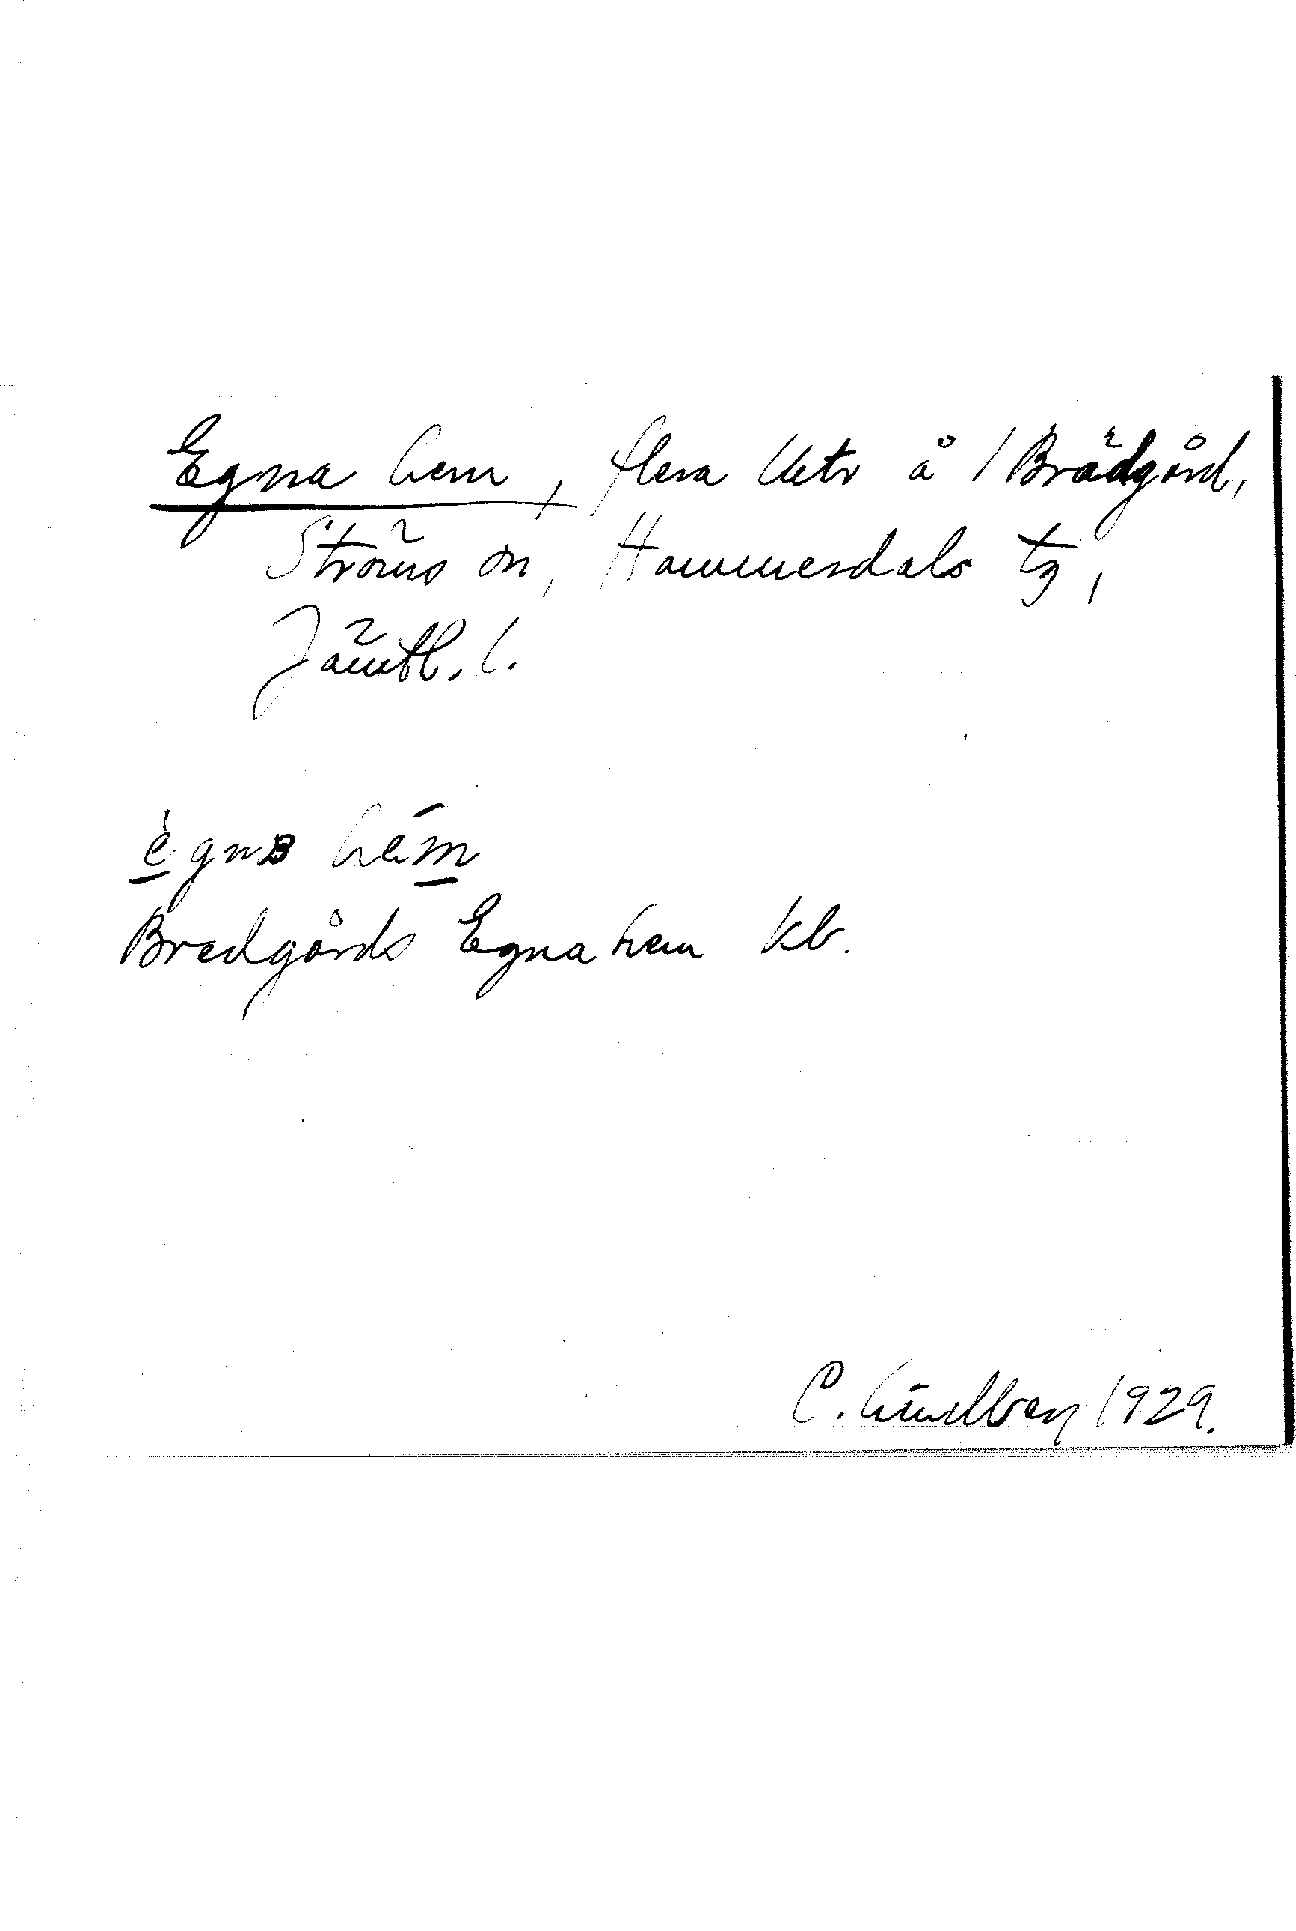 Egna hem, flera lktr å 1 Brädgård,
Ströms sn, Hammerdals tg,
Jämtl. l.
ègna hém
Bredgårds Egnahem kb.
C. Lindberg 1929.